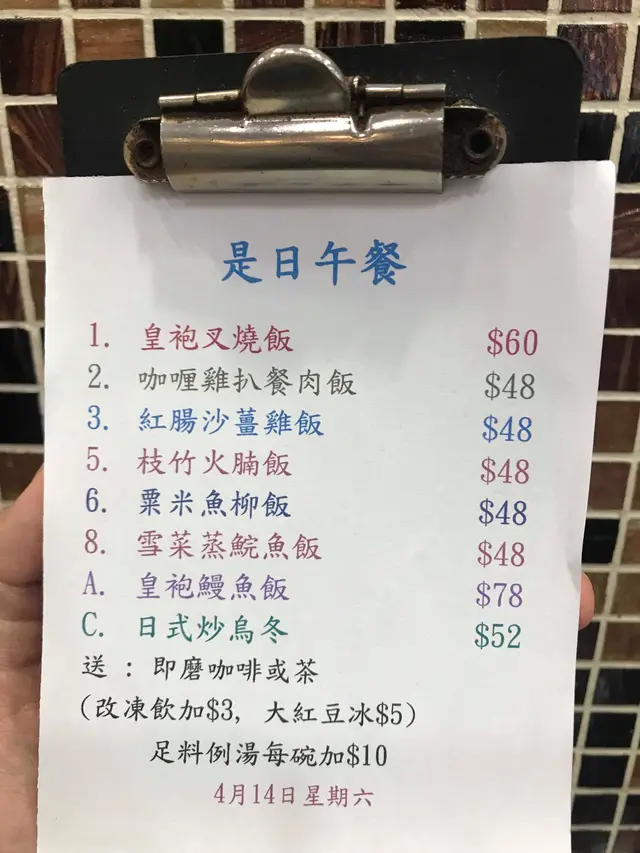 是日午餐
1. 皇袍叉燒飯 $60
2. 咖喱雞扒餐肉飯 $48
3. 紅腸沙薑雞飯 $48
5. 枝竹火腩飯 $48
6. 粟米魚柳飯 $48
8. 雪菜蒸鯇魚飯 $48
A. 皇袍鰻魚飯 $78
C. 日式炒烏冬 $52
送：即磨咖啡或茶
(改凍飲加$3, 大紅豆冰$5)
足料例湯每碗加$10
4月14日星期六